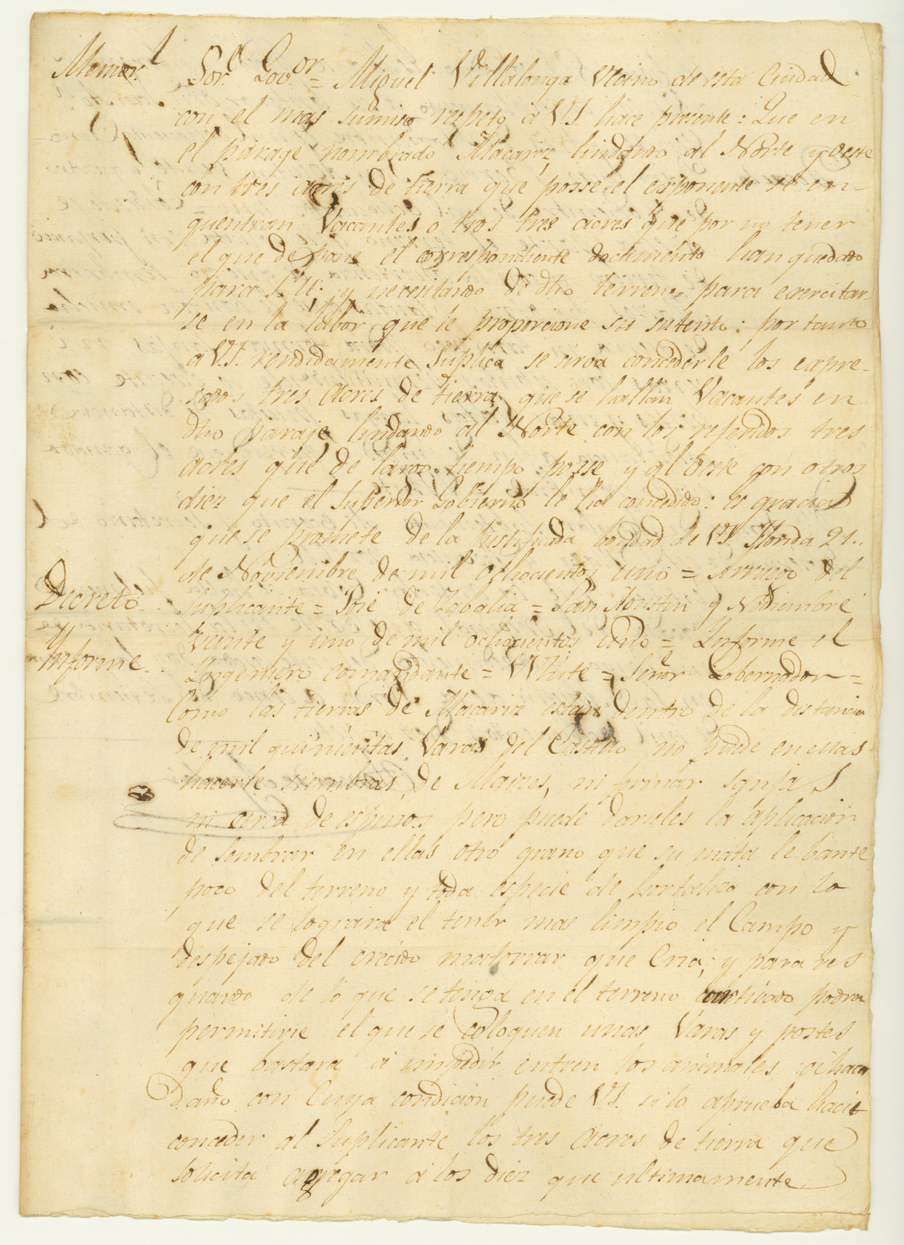 Memor.l
Sor. Govor = Miguel Villalonga vecino de esta Ciudad
con el mas sumiso respeto á VS. hace presente: Que en
el paraje nombrado Macariz lindando al Norte y oeste
con tres acres de tierra que posse el esponente se en-
quentran Vacantes otros tres acres que por no tener
el que de pane el correspondiente documento han quedado
para S.M.; y necesitando de dho terreno para exercitar-
se en la labor que le proporcione su sustento: por tanto
á V.S. rendidamente Suplica se sirva concederle los expre-
sados tres acres de tierra que se hallan Vacantes en
dho paraje lindando al Norte con los referidos tres
acres que de largo tiempo posse y al oeste con otros
diez que el Superior Gobierno le ha concedido: es gracia
que se promete de la justificada bondad de VS. Florida 21..
de Noviembre de mil ochocientos uno = arruego del
Suplicante = José de Zubalia = San Agustin y Noviembre
Decreto
veinte y uno de mil ochocientos uno = Informe el
y
Informe
Yngeniero comandante = White = Señor Gobernador =
Como las tierras de Macariz estan dentro de la distancia
de mil quinientas Varas del Castillo no puede en ellas
hacerse siembras de Maices, ni formar sanja
ni cerca de espinos pero puede darseles la aplicacion
de sembrar en ellas otro grano que su mata le bante
poco del terreno y toda especie de hortaliza con lo
que se lograra el tener mas limpio el Campo y
despejado del crecido matorrar que Cria; y para res
guardo de lo que se tenga en el terreno podra
permitirse el que se coloquen unas Varas y postes
que bastara á impedir entren los animales á hacer
Daño con Cuya condicion puede VS. si lo aprueba
conceder al Suplicante los tres acres de tierra que
solicita agregar á los diez que ultimamente